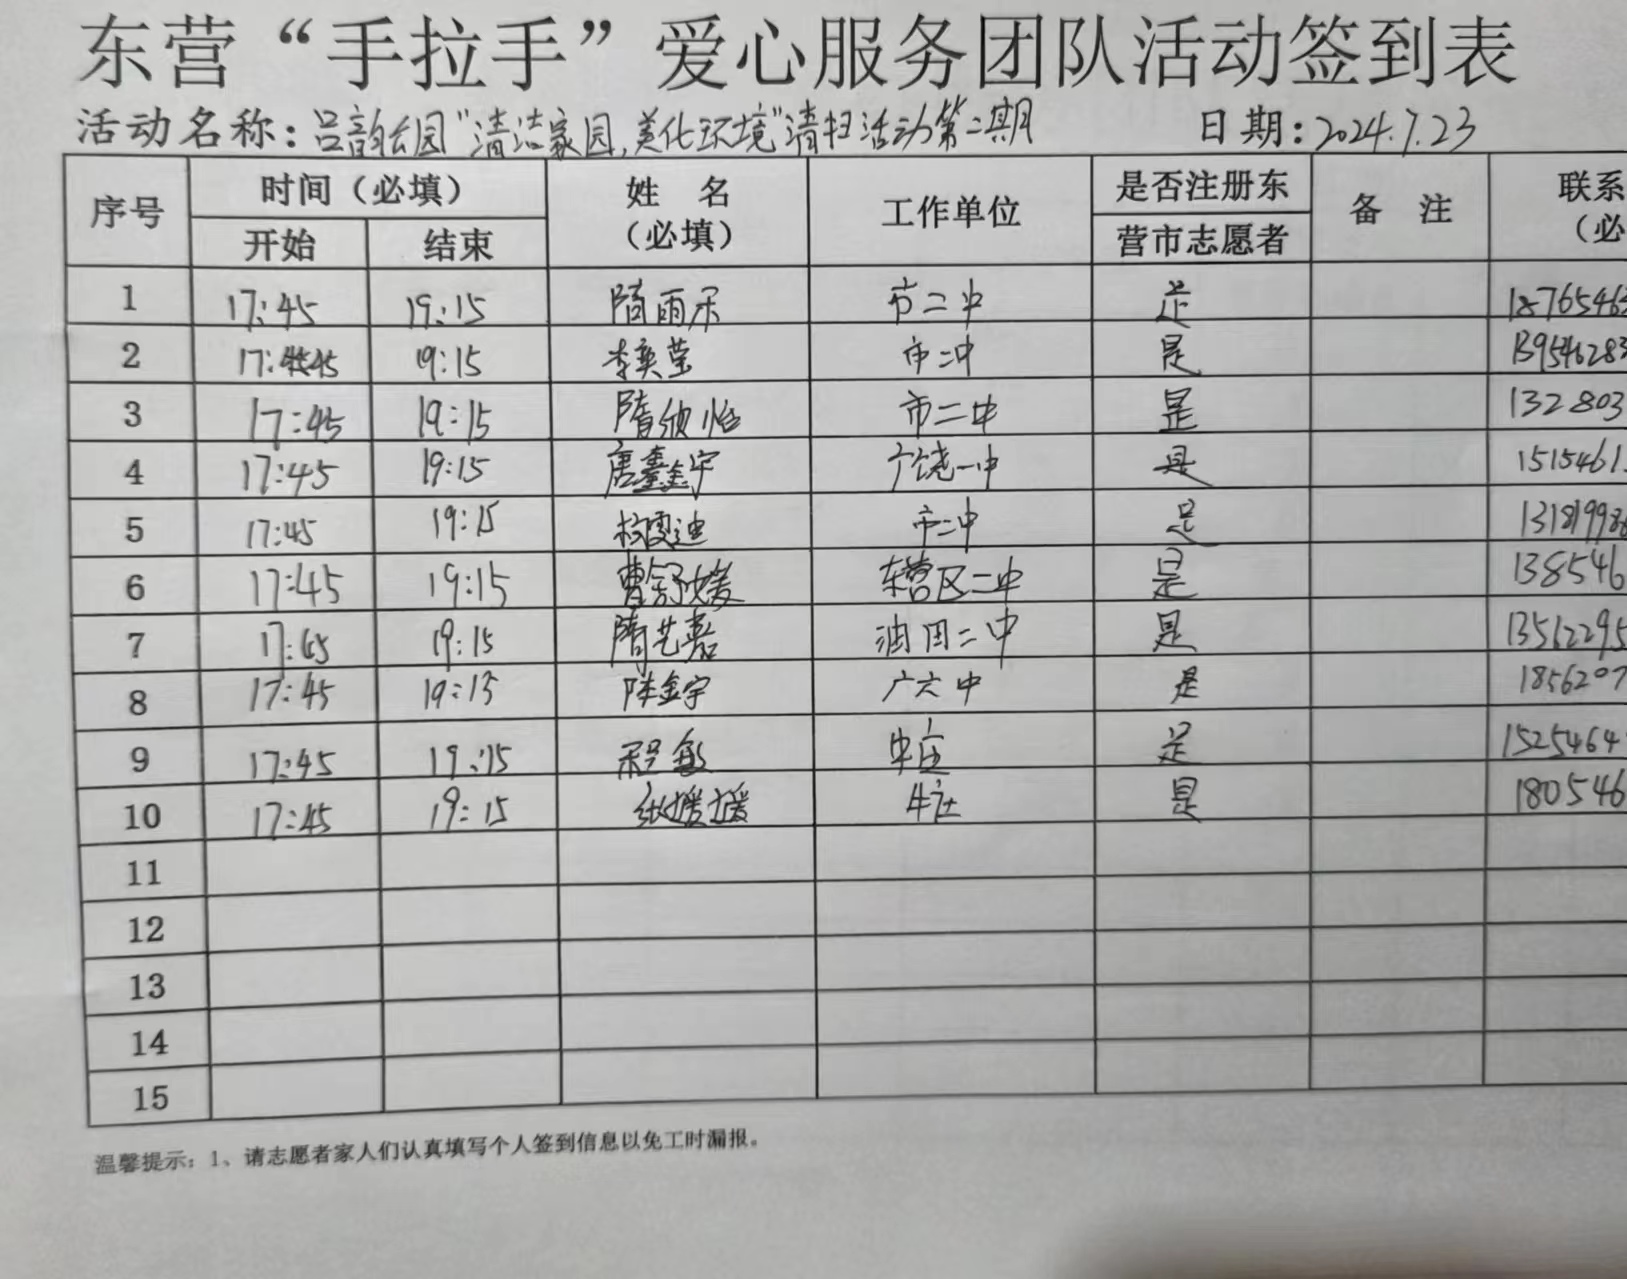 东营“手拉手”爱心服务团队活动签到表
活动名称：吕韵公园“清洁家园,美化环境”清扫活动第二期 日期：2024.7.23
序号 时间（必填） 姓 名（必填） 工作单位 是否注册东营市志愿者 备 注 联系（必
开始 结束
1 17:45 19:15 隋雨禾 市二中 是 18765463
2 17:45 19:15 李奕莹 市二中 是 139546283
3 17:45 19:15 隋 怡 市二中 是 132803
4 17:45 19:15 唐鑫宇 广饶一中 是 1515461
5 17:45 19:15 杨雯迪 市二中 是 13181998
6 17:45 19:15 曹舒媛 东营区二中 是 138546
7 17:45 19:15 隋艺嘉 油田二中 是 13562295
8 17:45 19:15 陈金宇 广六中 是 1856207
9 17:45 19:15 敏 牛庄 是 1525464
10 17:45 19:15 张媛媛 牛庄 是 180546
11
12
13
14
15
温馨提示：1、请志愿者家人们认真填写个人签到信息以免工时漏报。